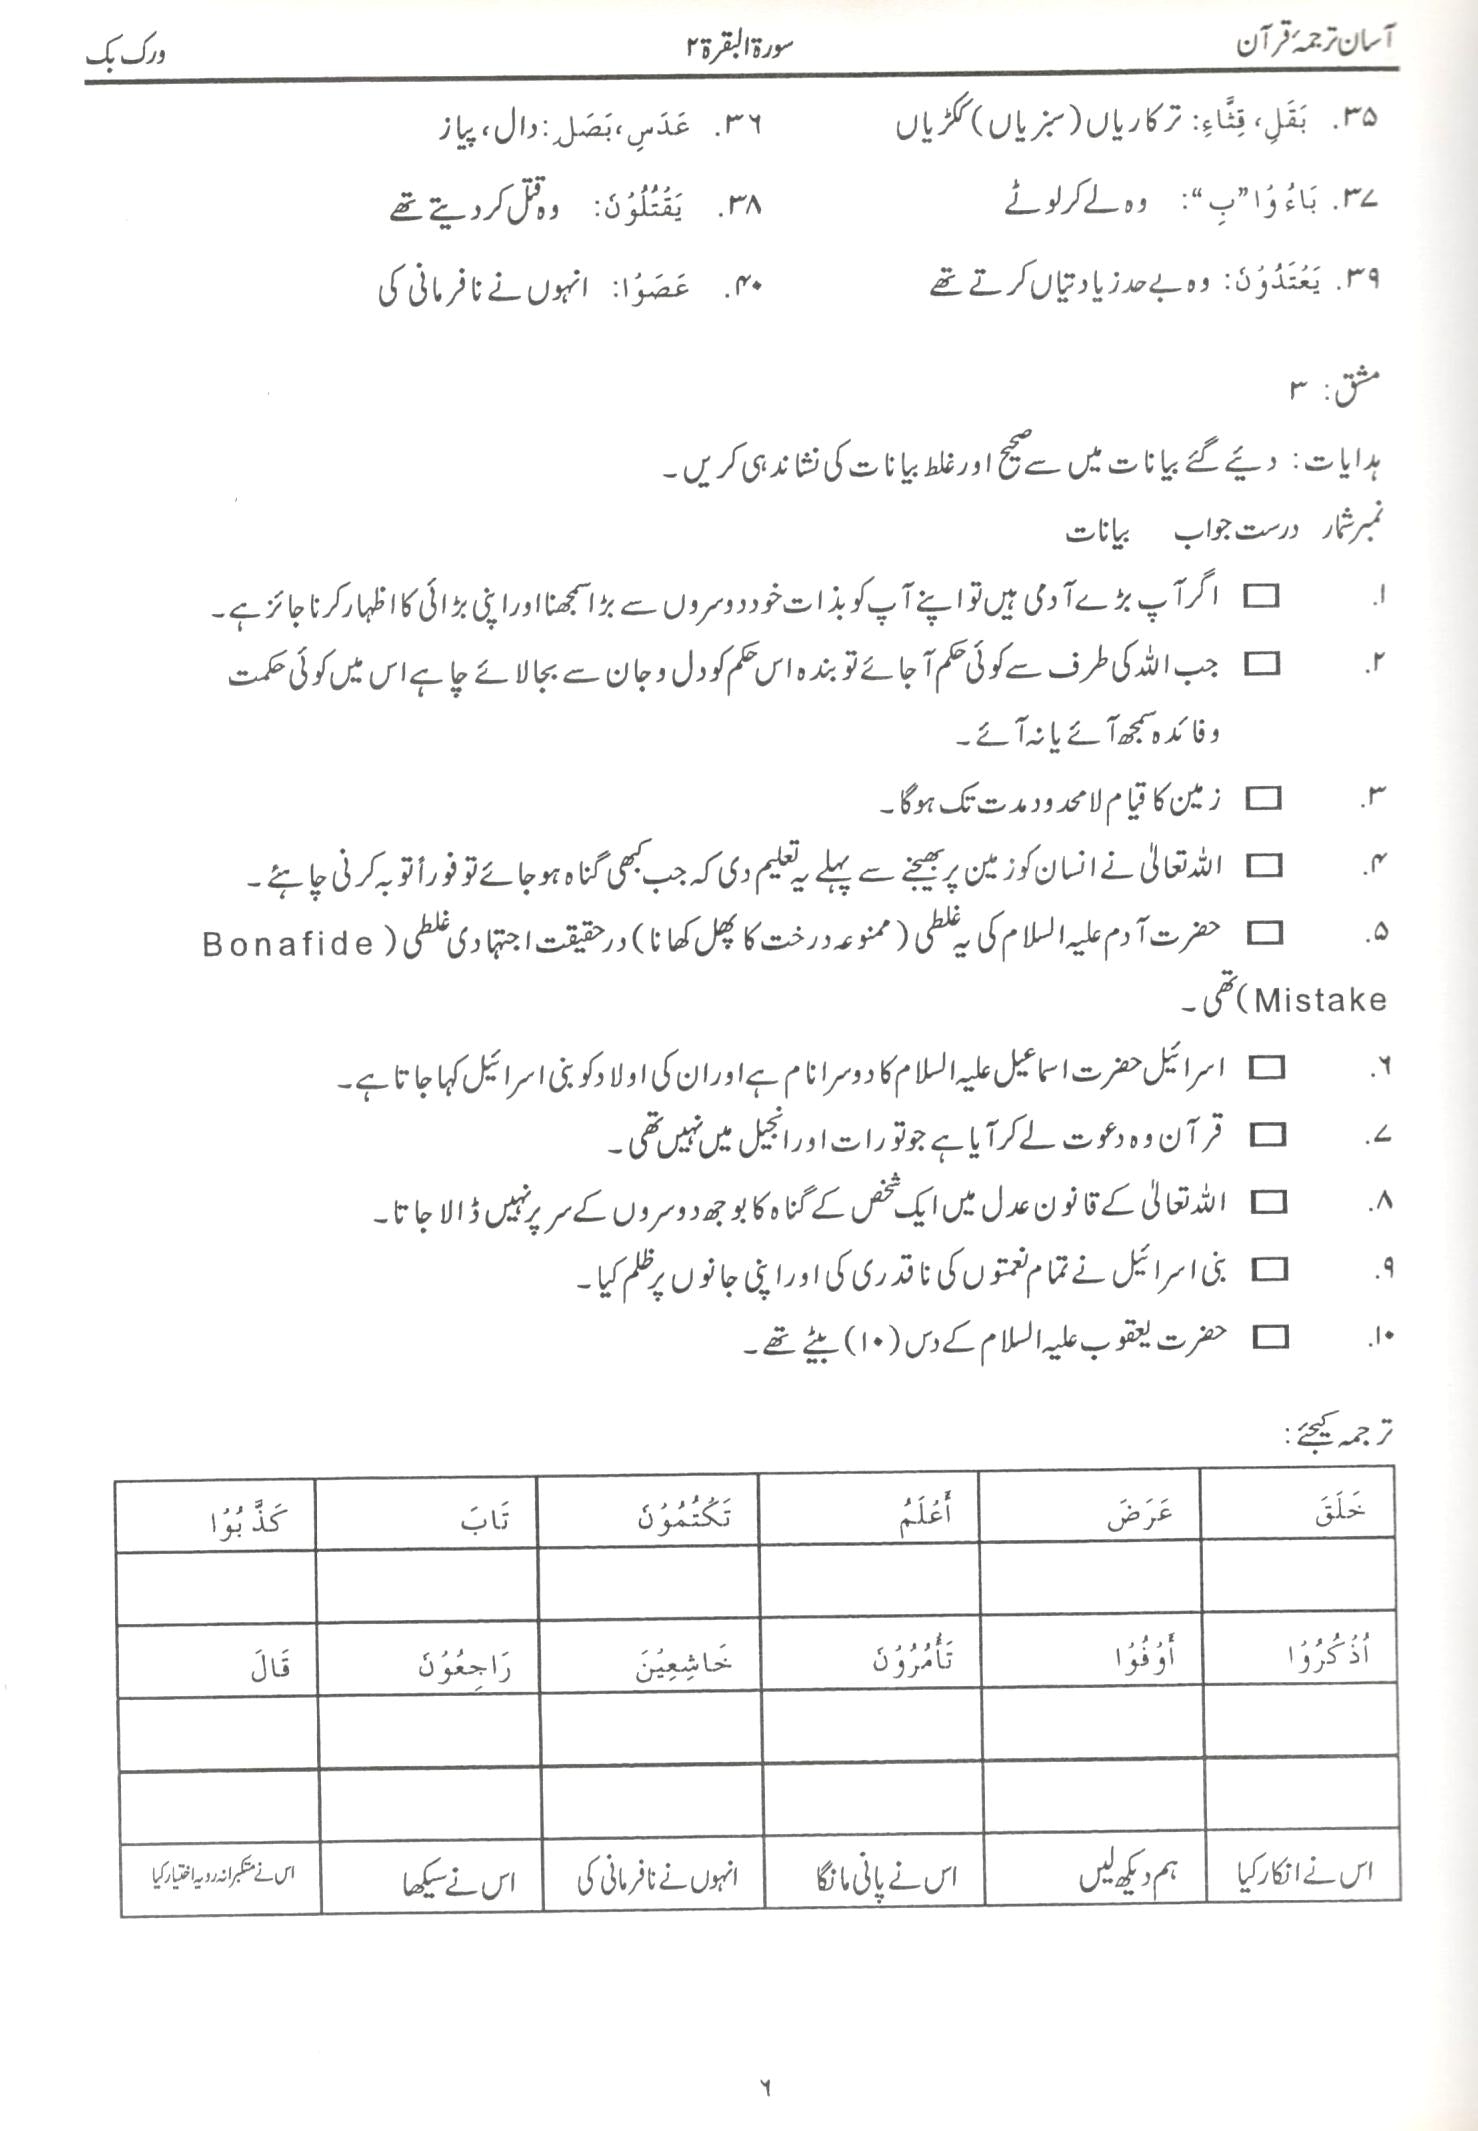 آسان ترجمۂ قرآن سورۃ البقرۃ ۲ ورک بک
۳۵. بَقَلِ، قِثَّاءِ: ترکاریاں (سبزیاں) ککڑیاں ۳۶. عَدَسِ، بَصَلِ: دال، پیاز
۳۷. بَاءُ وُا ”بِ“: وہ لے کر لوٹے ۳۸. يَقْتُلُوْنَ: وہ قتل کر دیتے تھے
۳۹. يَعْتَدُوْنَ: وہ بے حد زیادتیاں کرتے تھے ۴۰. عَصَوْا: انہوں نے نافرمانی کی
مشق: ۳
ہدایات: دیئے گئے بیانات میں سے صحیح اور غلط بیانات کی نشاندہی کریں۔
نمبر شمار درست جواب بیانات
۱. □ اگر آپ بڑے آدمی ہیں تو اپنے آپ کو بذات خود دوسروں سے بڑا سمجھنا اور اپنی بڑائی کا اظہار کرنا جائز ہے۔
۲. □ جب اللہ کی طرف سے کوئی حکم آ جائے تو بندہ اس حکم کو دل و جان سے بجا لائے چاہے اس میں کوئی حکمت
و فائدہ سمجھ آئے یا نہ آئے۔
۳. □ زمین کا قیام لامحدود مدت تک ہوگا۔
۴. □ اللہ تعالیٰ نے انسان کو زمین پر بھیجنے سے پہلے یہ تعلیم دی کہ جب کبھی گناہ ہو جائے تو فوراً توبہ کرنی چاہئے۔
۵. □ حضرت آدم علیہ السلام کی یہ غلطی (ممنوعہ درخت کا پھل کھانا) در حقیقت اجتہادی غلطی (Bonafide
Mistake) تھی۔
۶. □ اسرائیل حضرت اسماعیل علیہ السلام کا دوسرا نام ہے اور ان کی اولاد کو بنی اسرائیل کہا جاتا ہے۔
۷. □ قرآن وہ دعوت لے کر آیا ہے جو تورات اور انجیل میں نہیں تھی۔
۸. □ اللہ تعالیٰ کے قانون عدل میں ایک شخص کے گناہ کا بوجھ دوسروں کے سر پر نہیں ڈالا جاتا۔
۹. □ بنی اسرائیل نے تمام نعمتوں کی ناقدری کی اور اپنی جانوں پر ظلم کیا۔
۱۰. □ حضرت یعقوب علیہ السلام کے دس (۱۰) بیٹے تھے۔
ترجمہ کیجئے:
خَلَقَ عَرَضَ أَعْلَمُ تَكْتُمُوْنَ تَابَ كَذَّبُوْا
اُذْكُرُوْا أَوْفُوْا تَأْمُرُوْنَ خَاشِعِيْنَ رَاجِعُوْنَ قَالَ
اس نے انکار کیا ہم دیکھ لیں اس نے پانی مانگا انہوں نے نافرمانی کی اس نے سیکھا اس نے متکبرانہ رویہ اختیار کیا
۶